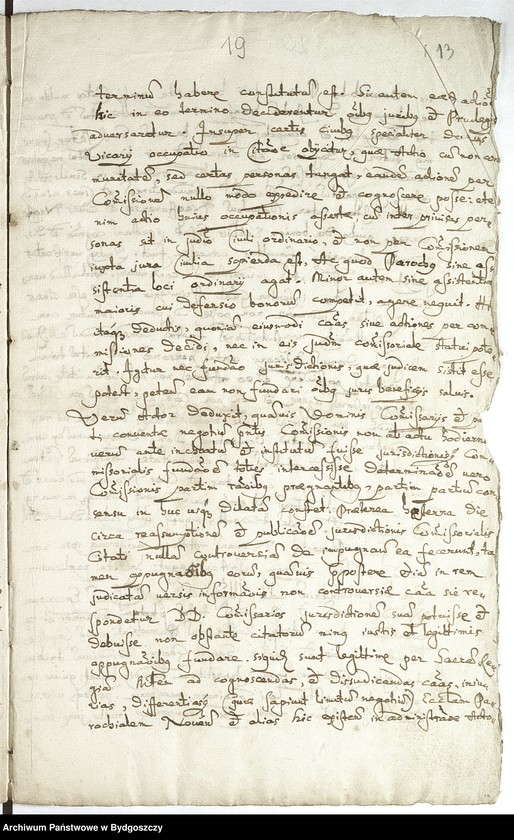 19
13
terminū habere constitutus est. Si autem eaeq actio
hic in eo termino deciderentur oībq juribq et Privilegijs
adversaretur. Insuper certis civibq specialiter
vicarij occupatio in Citāoe obijcitur, quae Actio cū non
sed certas personas tangat, eandē actionē per
Comissionē nullo modo expedire et cognoscere posse: ete
nim actio huius occupationis asserta cū inter privatas per,
sonas sit in judicio Civili ordinario, et non per Comissionem
iuxta jura Civilia sopienda est. Ac quod Parochq sine as
sistentia loci ordinarij agat. Minor autem sine assistentia
maioris cui defensio bonorū competit, agere nequit.
itaqz deductis, quoniam eiusmodi causas sive actiones per com
missiones decidi, nec in eis judicium comissoriale statui pote
rit. Igitur nec fundāo jurisdictionis, quae judicem sistit esse
potest, petens eam non fundari oībq juris beneficijs salvis.
Verū Actor deducit, quamvis Dominis Comissarijs et pa
ti, conventae negotiū pntis Comissionis non ab actu hodierno
verum ante inchoatū et institutū fuisse jurisdictionis Com
missorialis fundāoēs toties intercessisse determināoēs vero
Comissionis partim rāōibq praegnantibq, partim partiū con
sensu in huc usqz dilatas constet. Praeterea hesterna die
circa reassumptionē et publicāoēm jurisdictionis Comissorialis
Citati nullā controversiā de impugnanda ea fecerunt, ta
men oppugnāōibq eorū, quamvis postere etiā in rem
judicatā versis informāōis non controversiae causa sic re,
spondetur DD. Comissarios jurisdictionē suā potuisse et
debuisse non obstante citatorū minq iustis et legittimis
oppugnāōibq fundare. siquidē sunt legittime per Sacrā Re,
giā Mttem ad cognoscendas, et dijudicandas causas, iniu
rias, differentiasqz (quae sapiunt limitū negotiū) Ecclām Pa
rochialem Novēn et alias hic existēn in administrāoe Acto
Archiwum Państwowe w Bydgoszczy